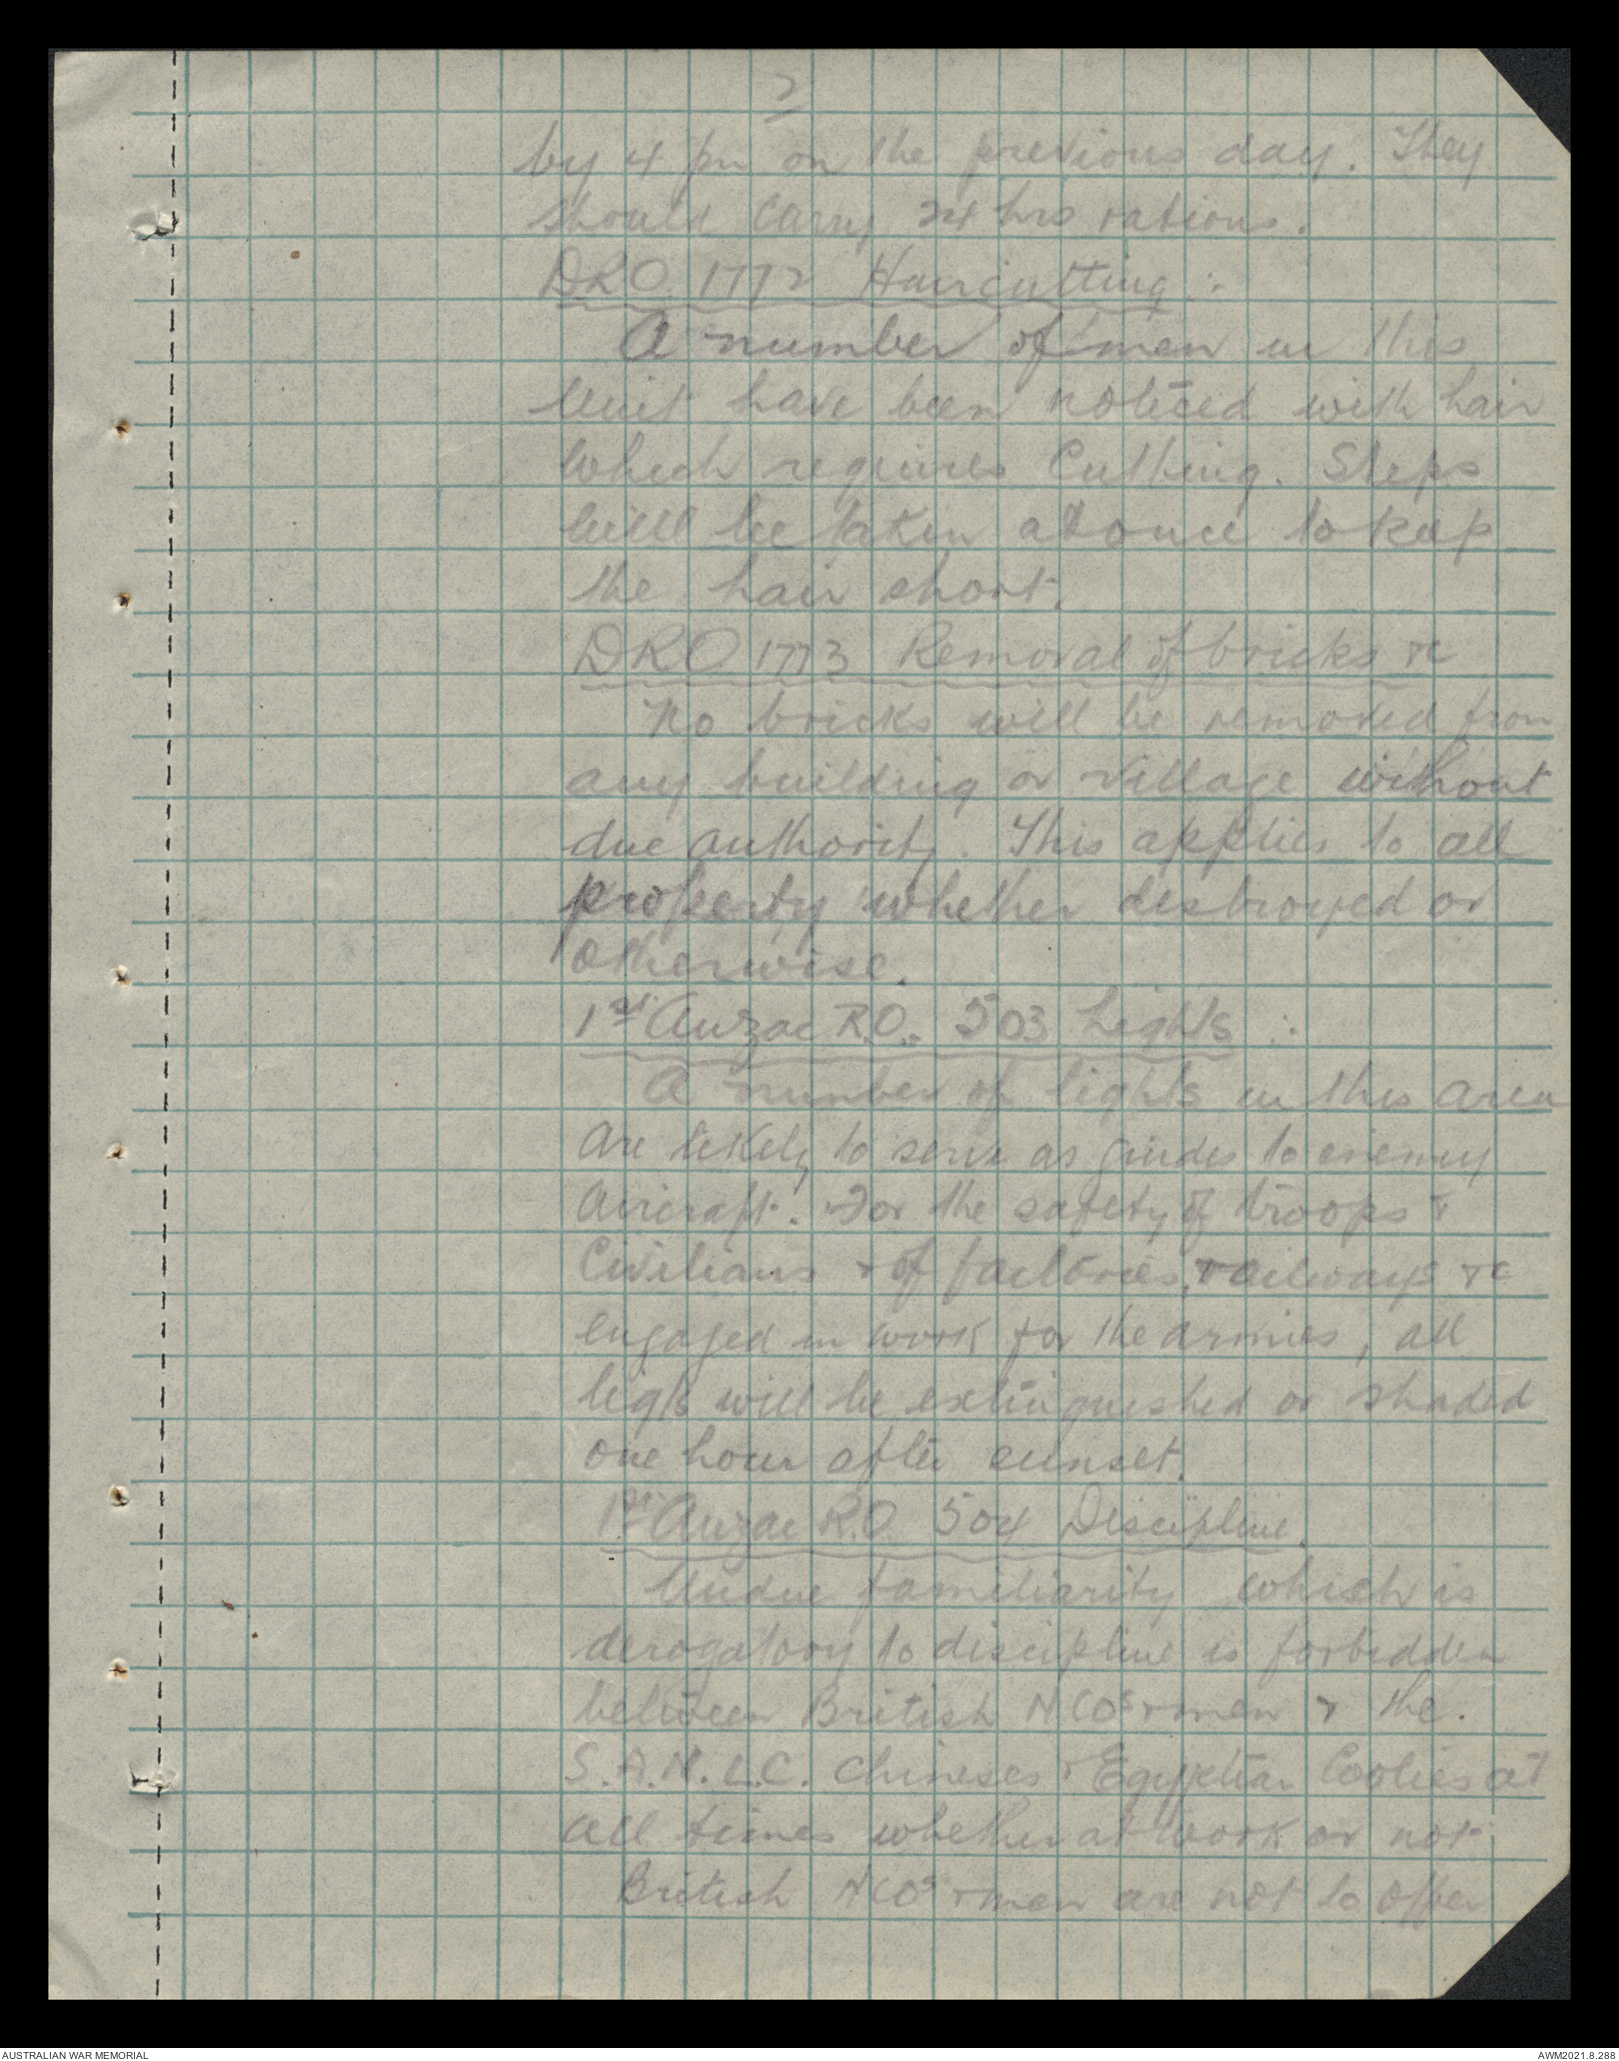 2
by 4 pm on the previous day. They
should carry 24 hrs rations.
DRO 1772 Haircutting :-
A number of men in this
Unit have been noticed with hair
which requires Cutting. Steps
will be taken at once to keep
the hair short.
DRO 1773 Removal of bricks &c
No bricks will be removed from
any building or village without
due authority. This applies to all
property whether destroyed or
otherwise.
1st Anzac R.O. 503 Lights :
A number of lights in this area
are likely to serve as guides to enemy
aircraft. For the safety of troops &
Civilians & of factories, railways &c
engaged in work for the armies, all
lights will be extinguished or shaded
one hour after sunset.
1st Anzac R.O. 504 Discipline.
Undue familiarity which is
derogatory to discipline is forbidden
between British NCOs & men & the.
S.A.N.L.C. Chineses & Egyptian Coolies at
all times whether at work or not.
British NCOs & men are not to offer
AUSTRALIAN WAR MEMORIAL
AWM2021.8.288